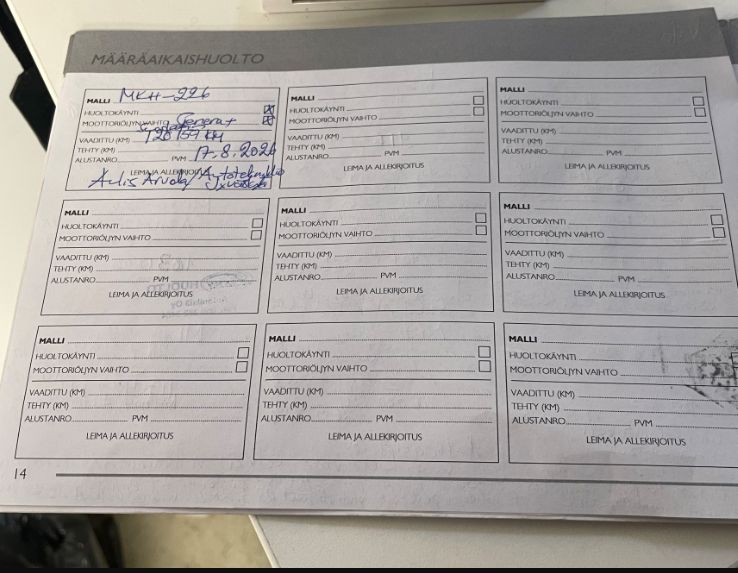 MÄÄRÄAIKAISHUOLTO
MALLI MKH-226
HUOLTOKÄYNTI
MOOTTORIÖLJYN VAIHTO
VAADITTU (KM) 120 159 KM
TEHTY (KM)
ALUSTANRO PVM 17.8.2024
LEIMA JA ALLEKIRJOITUS
Aulis Arvola
MALLI
HUOLTOKÄYNTI
MOOTTORIÖLJYN VAIHTO
VAADITTU (KM)
TEHTY (KM)
ALUSTANRO PVM
LEIMA JA ALLEKIRJOITUS
MALLI
HUOLTOKÄYNTI
MOOTTORIÖLJYN VAIHTO
VAADITTU (KM)
TEHTY (KM)
ALUSTANRO PVM
LEIMA JA ALLEKIRJOITUS
MALLI
HUOLTOKÄYNTI
MOOTTORIÖLJYN VAIHTO
VAADITTU (KM)
TEHTY (KM)
ALUSTANRO PVM
LEIMA JA ALLEKIRJOITUS
MALLI
HUOLTOKÄYNTI
MOOTTORIÖLJYN VAIHTO
VAADITTU (KM)
TEHTY (KM)
ALUSTANRO PVM
LEIMA JA ALLEKIRJOITUS
MALLI
HUOLTOKÄYNTI
MOOTTORIÖLJYN VAIHTO
VAADITTU (KM)
TEHTY (KM)
ALUSTANRO PVM
LEIMA JA ALLEKIRJOITUS
MALLI
HUOLTOKÄYNTI
MOOTTORIÖLJYN VAIHTO
VAADITTU (KM)
TEHTY (KM)
ALUSTANRO PVM
LEIMA JA ALLEKIRJOITUS
MALLI
HUOLTOKÄYNTI
MOOTTORIÖLJYN VAIHTO
VAADITTU (KM)
TEHTY (KM)
ALUSTANRO PVM
LEIMA JA ALLEKIRJOITUS
MALLI
HUOLTOKÄYNTI
MOOTTORIÖLJYN VAIHTO
VAADITTU (KM)
TEHTY (KM)
ALUSTANRO PVM
LEIMA JA ALLEKIRJOITUS
14